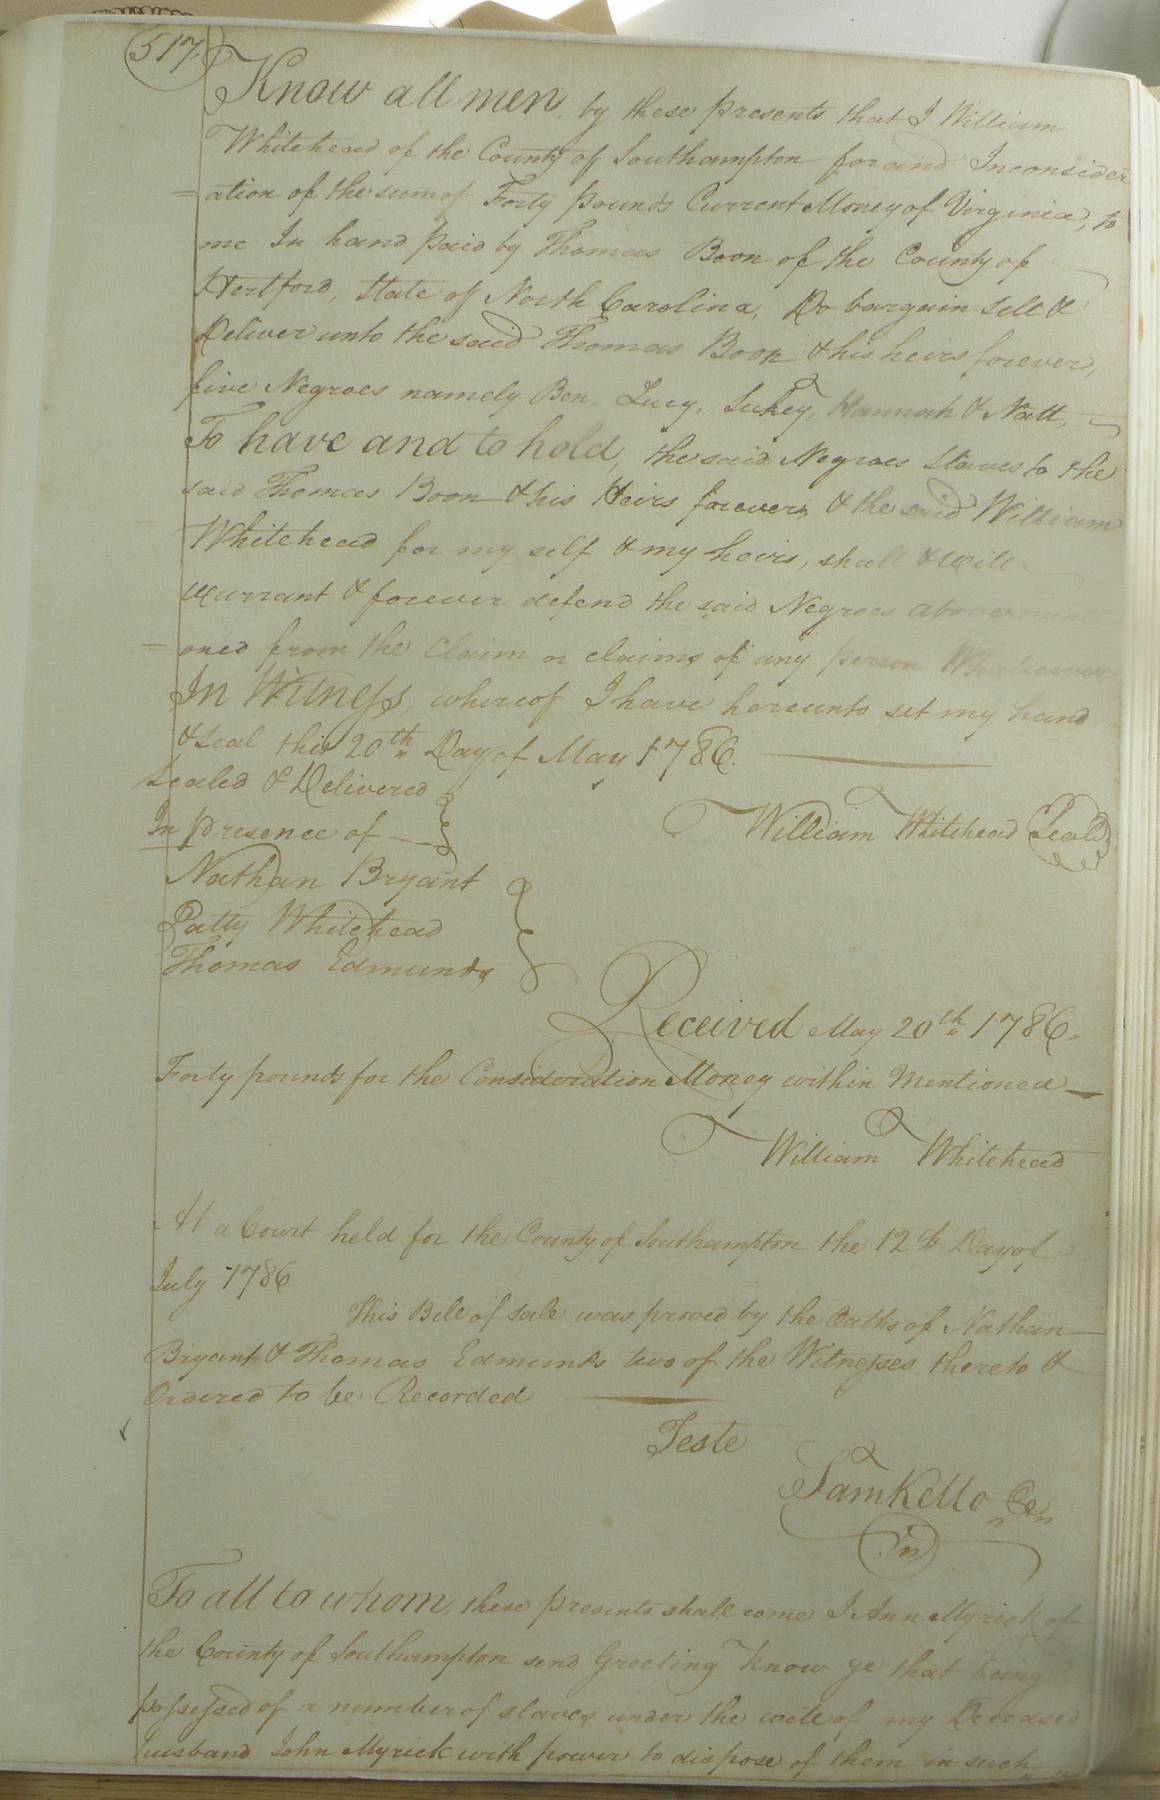 517
Know all men by these presents that I William
Whitehead of the County of Southampton for and Inconsider
=ation of the sum of Forty pounds Current Money of Virginia, to
me In hand paid by Thomas Boon of the County of
Hertford, State of North Carolina, Do bargain Sell &
Deliver unto the said Thomas Boon & his heirs forever,
five Negroes namely Ben, Lucy, Sukey, Hannah & Natt,
To have and to hold, the said Negroes Slaves to the
said Thomas Boon & his Heirs forever, & the said William
Whitehead for my self & my heirs, shall & will
warrant & forever defend the said Negroes above men
=oned from the Claim or claims of any person Whatsoever
In Witness, whereof I have hereunto set my hand
& Seal this 20th Day of May 1786.
Sealed & Delivered
In presence of
William Whitehead Seal
Nathan Bryant
Patty Whitehead
Thomas Edmunds
Received May 20th 1786.
Forty pounds for the Consideration Money within Mentioned
William Whitehead
At a Court held for the County of Southampton the 12th Day of
July 1786
This Bill of Sale was proved by the Oaths of Nathan
Bryant & Thomas Edmunds two of the Witnesses thereto &
Ordered to be Recorded
Teste
Sam Kello
To all to whom these presents shall come I Ann Myrick of
the County of Southampton send Greeting Know ye that being
possessed of a number of slaves under the will of my Deceased
husband John Myrick with power to dispose of them in such